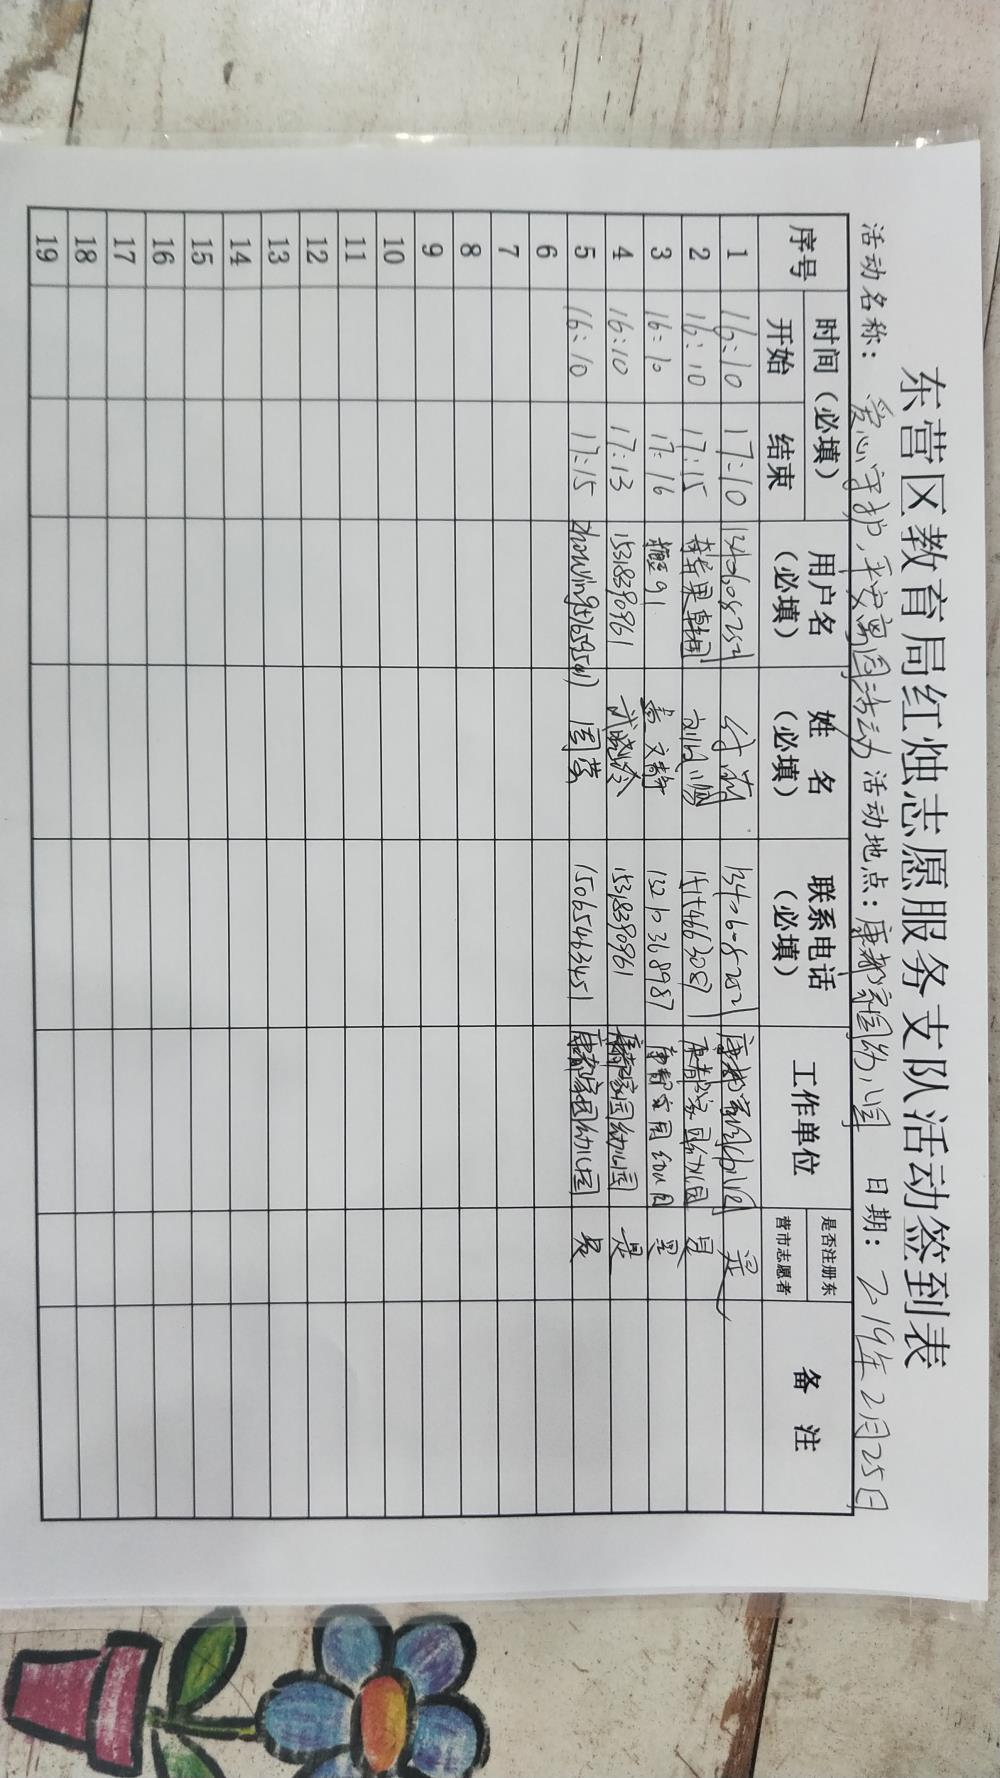 东营区教育局红烛志愿服务支队活动签到表
活动名称：爱心守护,平安离园活动 活动地点：康都家园幼儿园 日期：2019年2月25日
序号 时间（必填） 用户名（必填） 姓名（必填） 联系电话（必填） 工作单位 是否注册东营市志愿者 备注
开始 结束
1 16:10 17:10 康都家园幼儿园 是
2 16:10 17:15 康都家园幼儿园 是
3 16:10 17:16 文静 13210368987 康都家园幼儿园 是
4 16:10 17:13 15318390961 武晓玲 15318390961 康都家园幼儿园 是
5 16:10 17:15 周莹 15065463451 康都家园幼儿园 是
6
7
8
9
10
11
12
13
14
15
16
17
18
19